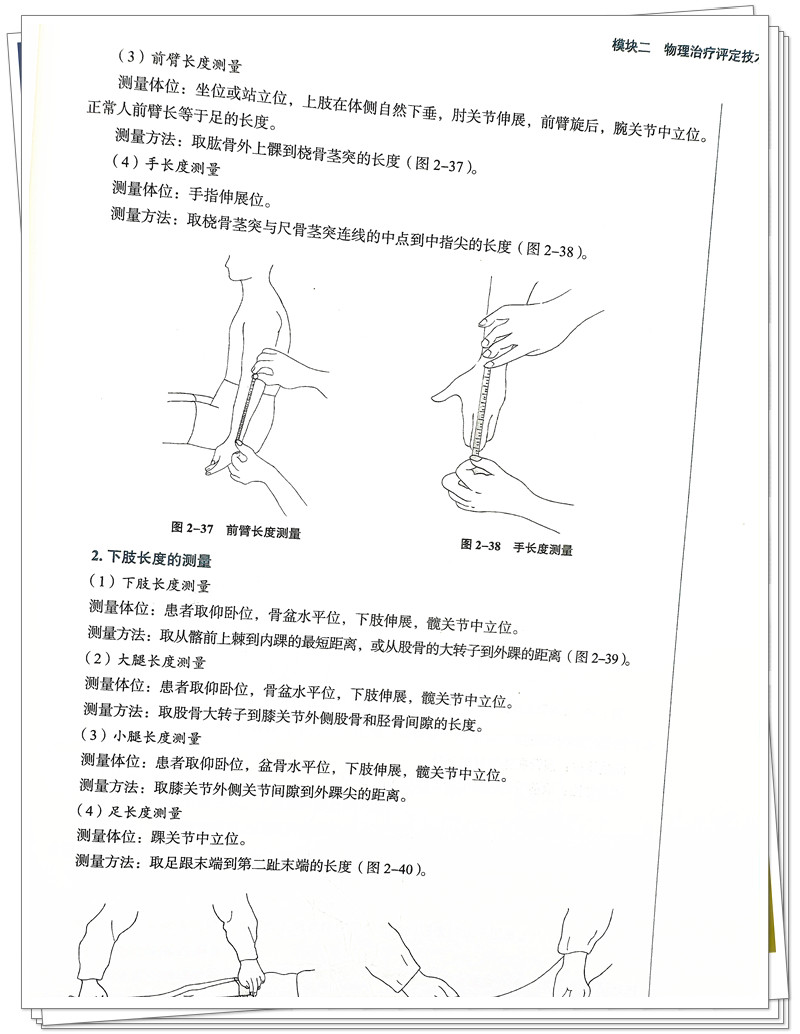 模块二 物理治疗评定技
（3）前臂长度测量
测量体位：坐位或站立位，上肢在体侧自然下垂，肘关节伸展，前臂旋后，腕关节中立位。
正常人前臂长等于足的长度。
测量方法：取肱骨外上髁到桡骨茎突的长度（图 2–37）。
（4）手长度测量
测量体位：手指伸展位。
测量方法：取桡骨茎突与尺骨茎突连线的中点到中指尖的长度（图 2–38）。
图 2–37 前臂长度测量
图 2–38 手长度测量
2. 下肢长度的测量
（1）下肢长度测量
测量体位：患者取仰卧位，骨盆水平位，下肢伸展，髋关节中立位。
测量方法：取从髂前上棘到内踝的最短距离，或从股骨的大转子到外踝的距离（图 2–39）。
（2）大腿长度测量
测量体位：患者取仰卧位，骨盆水平位，下肢伸展，髋关节中立位。
测量方法：取股骨大转子到膝关节外侧股骨和胫骨间隙的长度。
（3）小腿长度测量
测量体位：患者取仰卧位，盆骨水平位，下肢伸展，髋关节中立位。
测量方法：取膝关节外侧关节间隙到外踝尖的距离。
（4）足长度测量
测量体位：踝关节中立位。
测量方法：取足跟末端到第二趾末端的长度（图 2–40）。